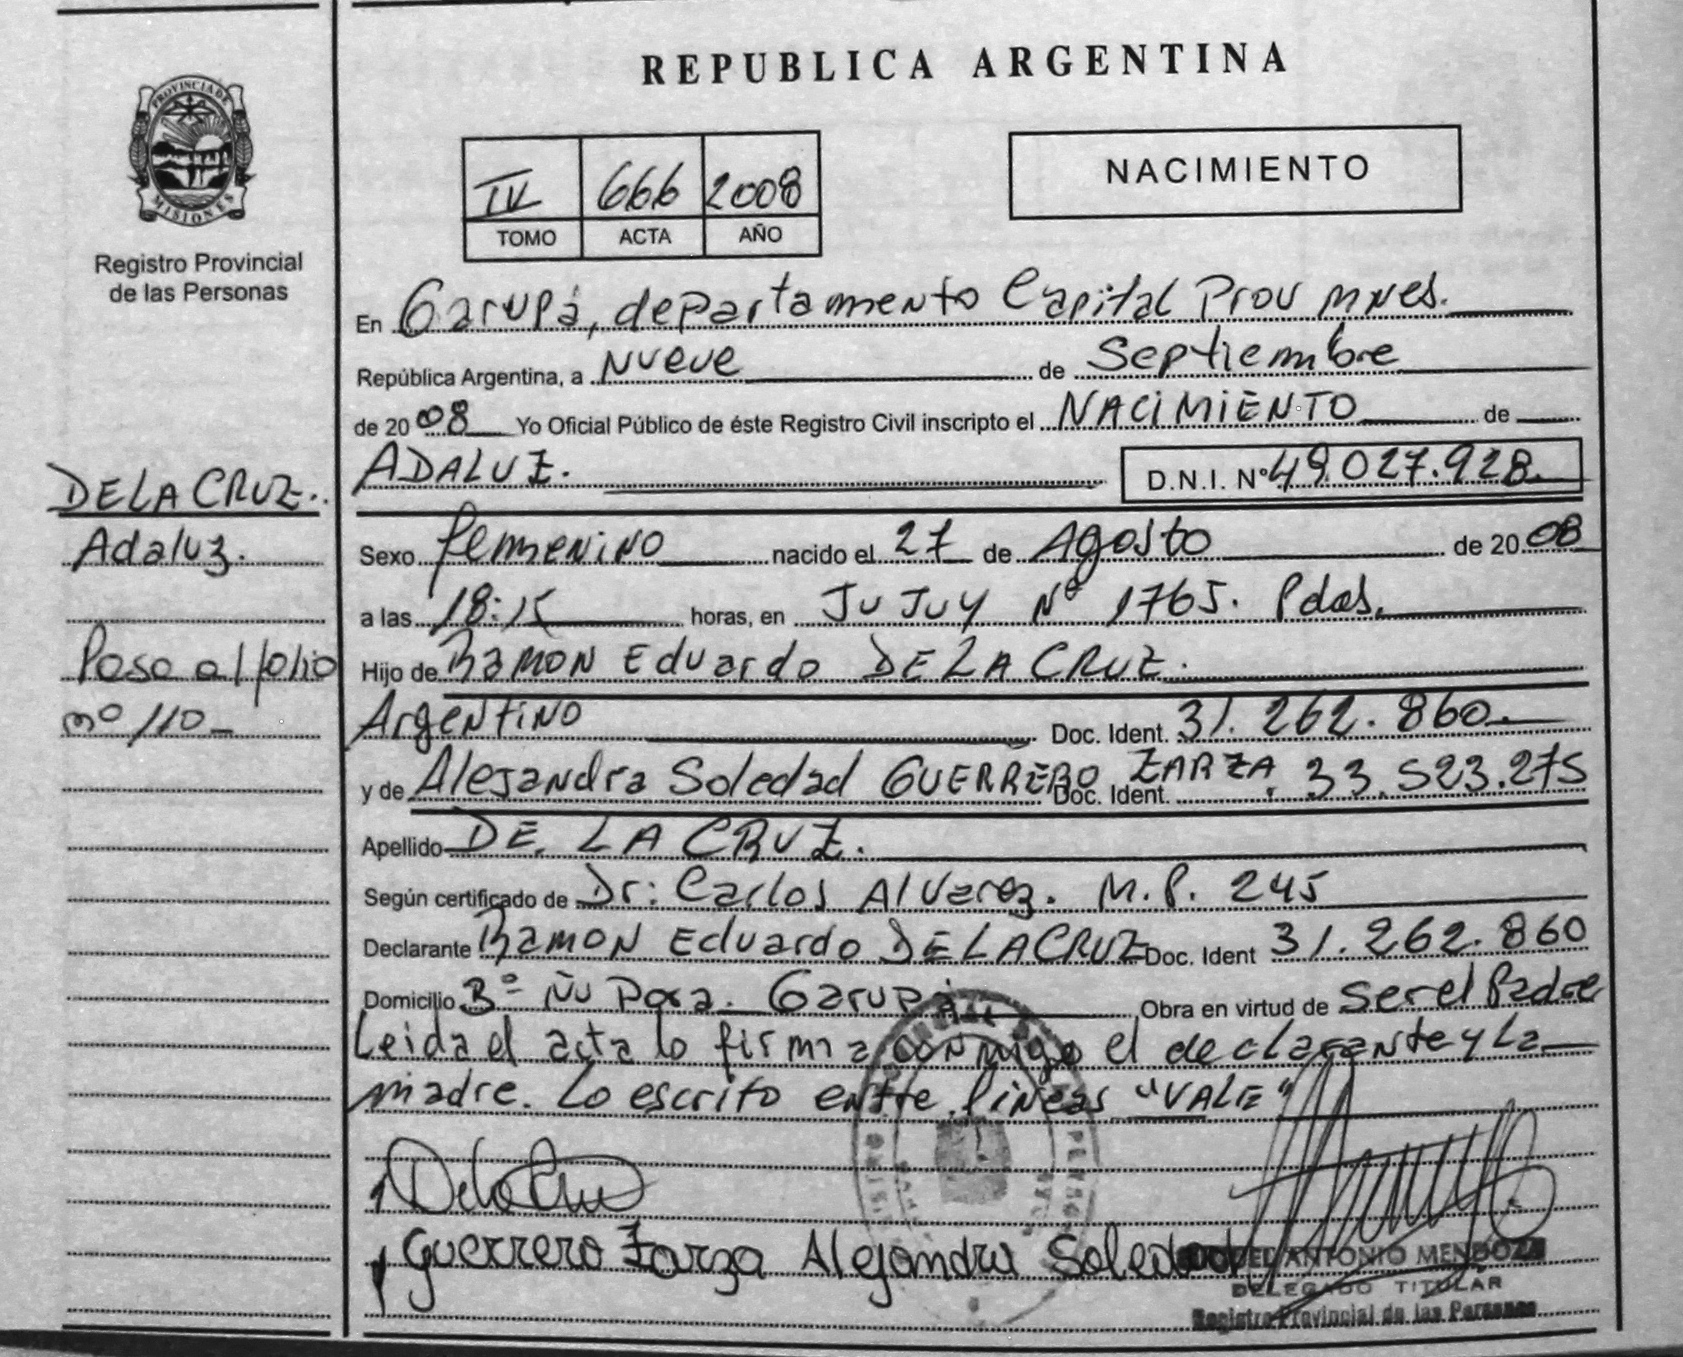 REPUBLICA ARGENTINA
PROVINCIA DE
MISIONES
Registro Provincial
de las Personas
IV 666 2008
TOMO ACTA AÑO
NACIMIENTO
En Garupá, departamento Capital Prov mnes.
República Argentina, a Nueve de Septiembre
de 2008 Yo Oficial Público de éste Registro Civil inscripto el NACIMIENTO de
ADALUZ. D.N.I. Nº 49.027.928.
DE LA CRUZ.
Adaluz.
Paso al folio
nº 110
Sexo femenino nacido el 27 de Agosto de 2008
a las 18:15 horas, en JuJuy Nº 1765. Pdas.
Hijo de Ramon Eduardo DE LA CRUZ.
Argentino Doc. Ident. 31.262.860.
y de Alejandra Soledad GUERRERO ZARZA Doc. Ident. 33.523.275
Apellido DE LA CRUZ.
Según certificado de Dr: Carlos Alvarez. M.P. 245
Declarante Ramon Eduardo DE LA CRUZ Doc. Ident 31.262.860
Domicilio Bº Ñu Pora. Garupá Obra en virtud de ser el Padre
Leida el acta lo firma conmigo el declarante y La
madre. Lo escrito entre lineas "VALE"
De la Cruz
Guerrero Zarza Alejandra Soledad
ANTONIO MENDOZA
DELEGADO TITULAR
Registro Provincial de las Personas